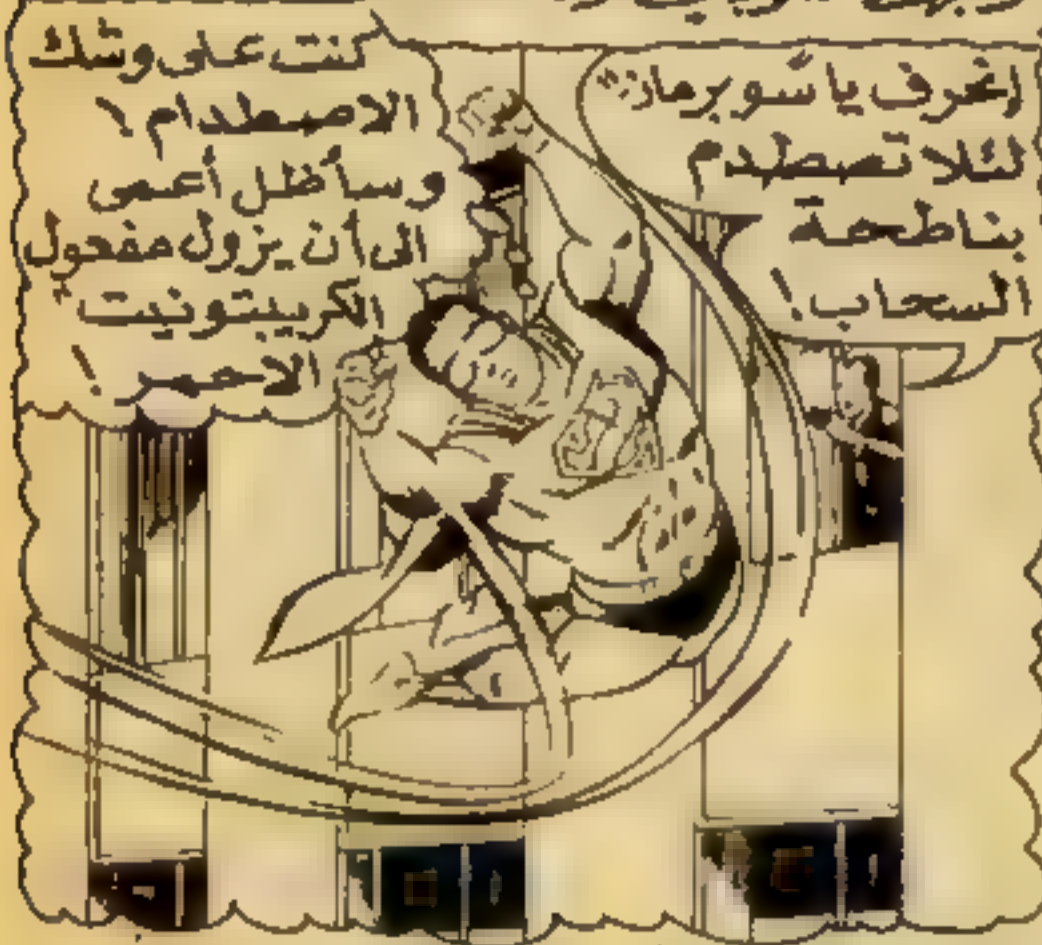 إنحرف يا سوبرمان
لئلا تصطدم
بناطحة
السحاب!
كنت على وشك
الاصطدام!
وسأظل أعمى
الى أن يزول مفعول
الكريبتونيت
الاحمر!